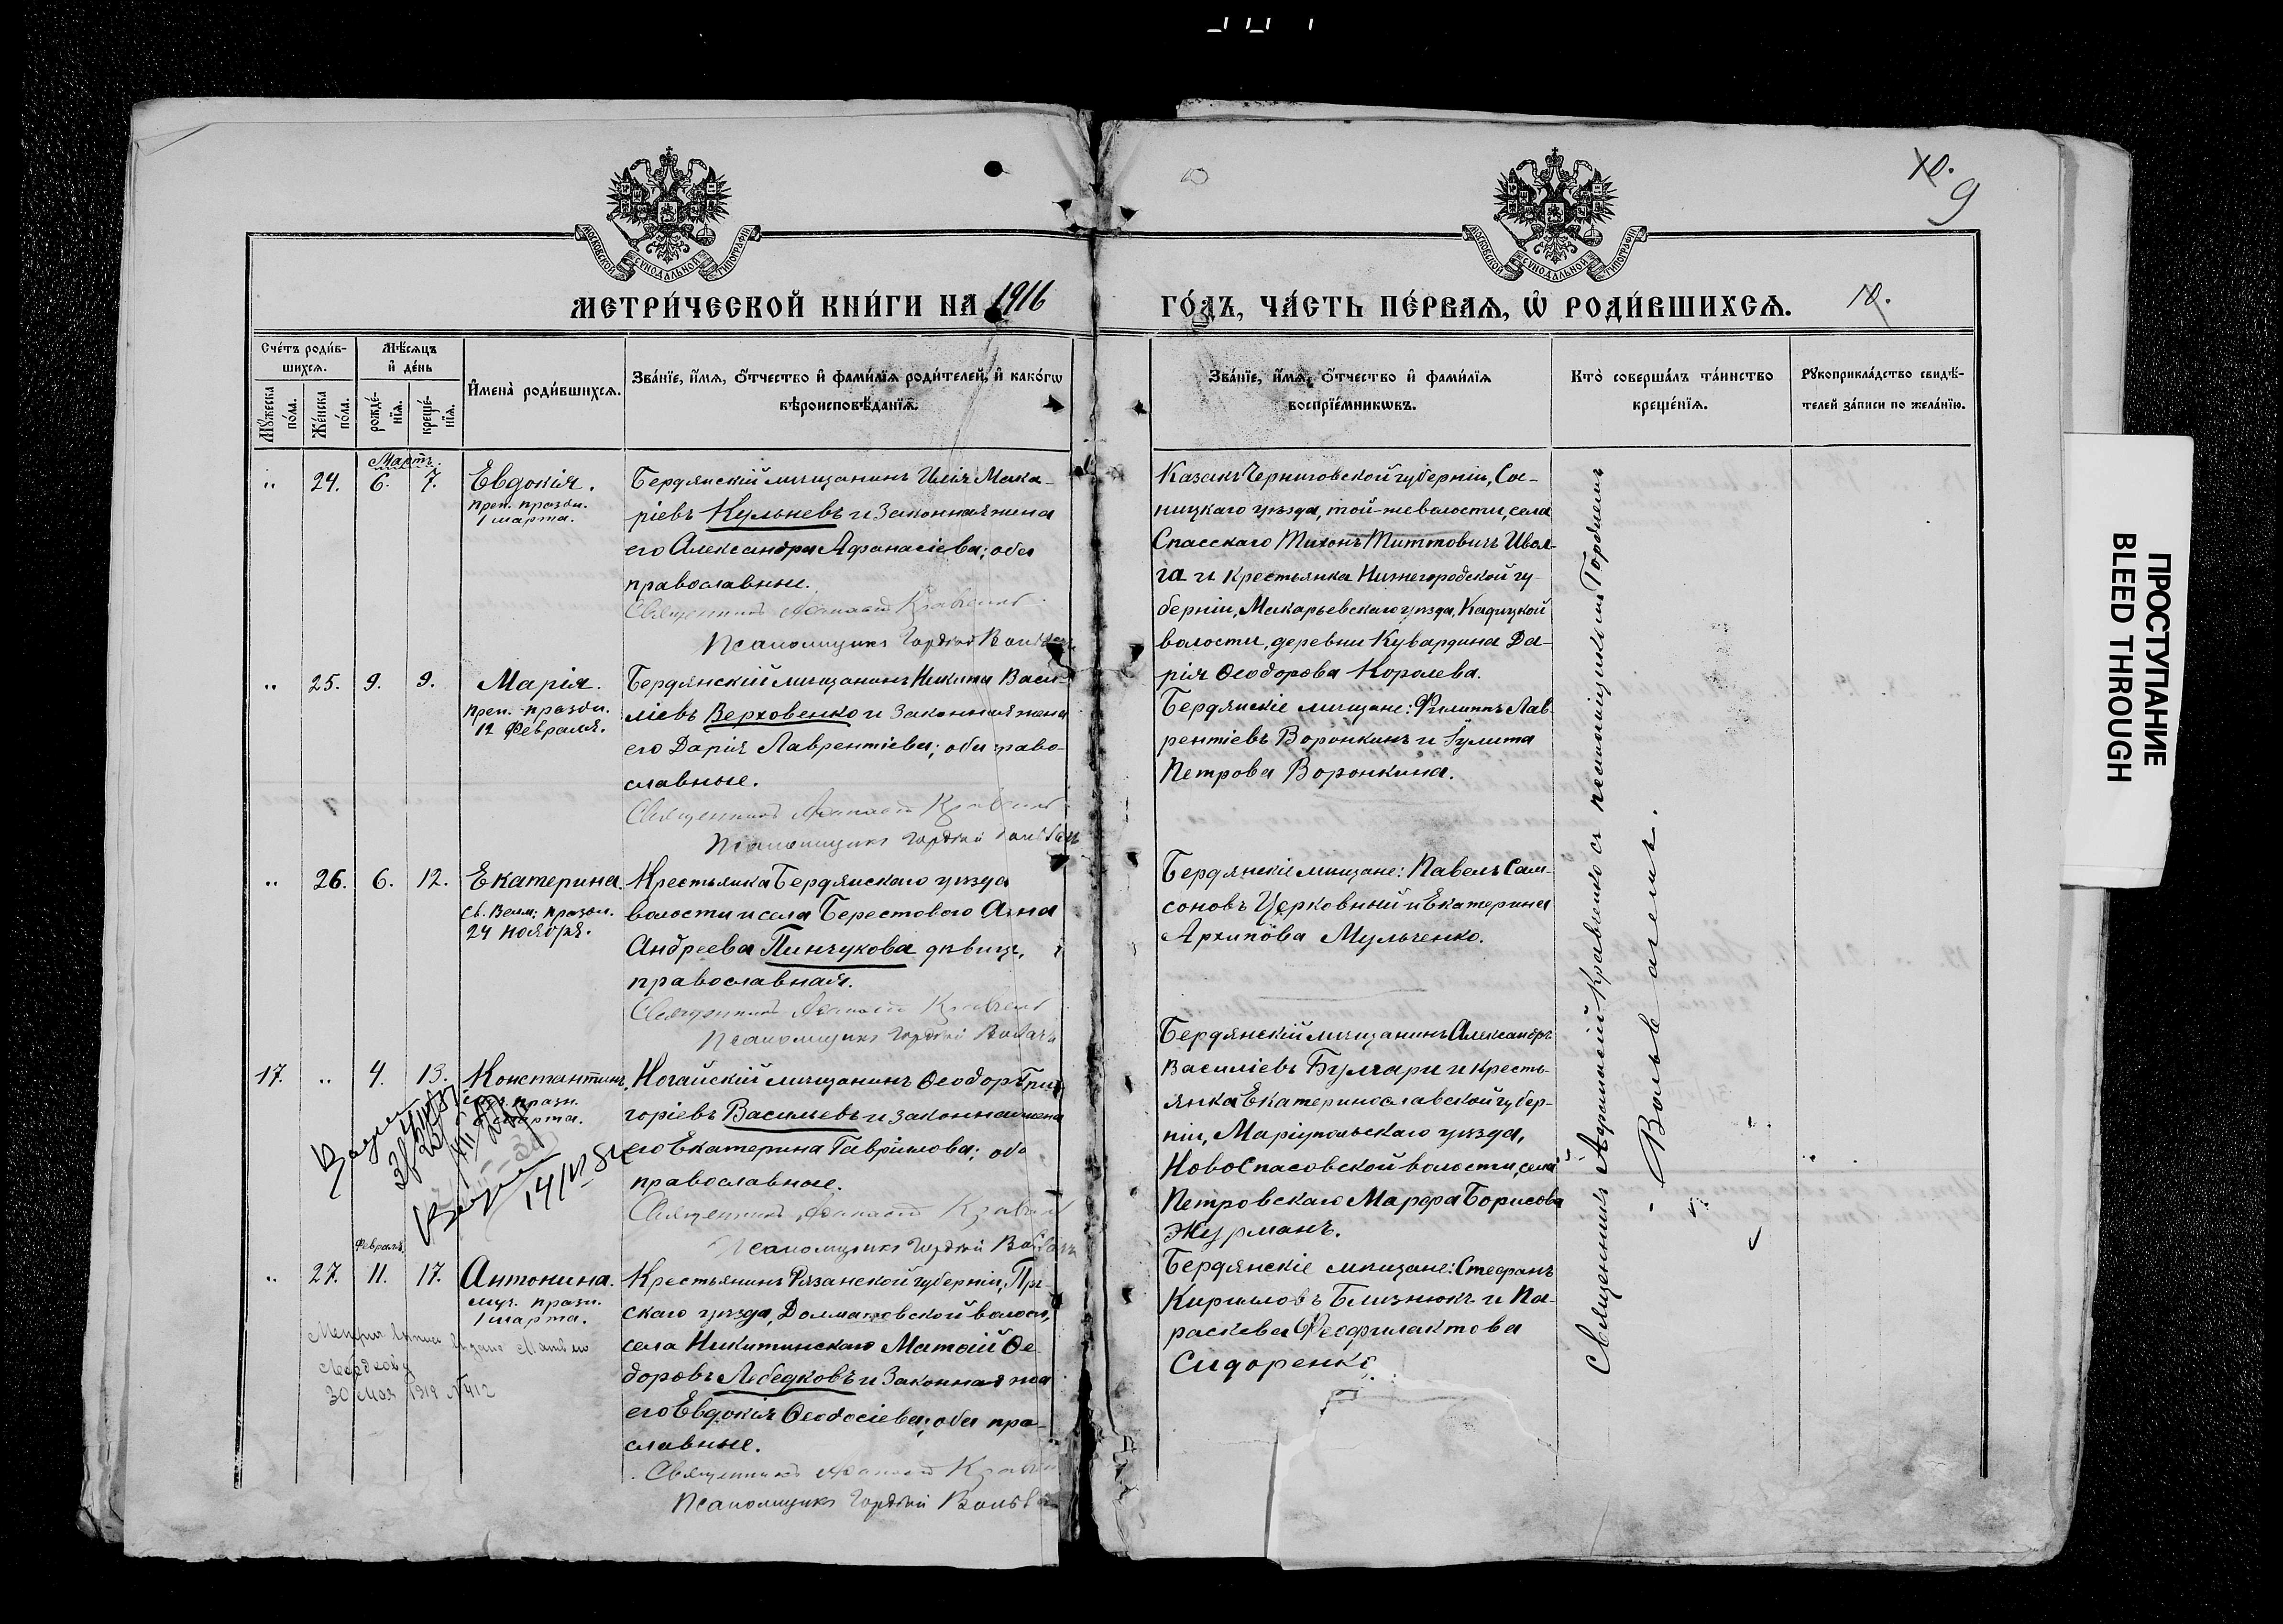 10.
9
МОСКОВСКОЙ СѴНОДАЛЬНОЙ ТИПОГРАФІИ
МОСКОВСКОЙ СѴНОДАЛЬНОЙ ТИПОГРАФІИ
МЕТРИ́ЧЕСКОЙ КНИ́ГИ НА 1916
ГО́ДЪ, ЧА́СТЬ ПЕ́РВАѦ, Ѽ РОДИ́ВШИХСѦ. 10.
Сче́тъ роди́в-
шихсѧ.
Мꙋ́жеска по́ла.
Же́нска по́ла.
Мѣ́сѧцъ
и҆ де́нь
рожде́-
нїѧ.
креще́-
нїѧ.
И҆мена̀ роди́вшихсѧ.
Зва́нїе, и҆́мѧ, ѻ҆́тчество и҆ фами́лїѧ роди́телей, и҆ како́гѡ
вѣроисповѣ́данїѧ.
Зва́нїе, и҆́мѧ, ѻ҆́тчество и҆ фами́лїѧ
воспрїе́мникѡвъ.
Кто̀ соверша́лъ та́инство
креще́нїѧ.
Рꙋкоприкла́дство свидѣ́-
телей за́писи по жела́нїю.
Мартъ.
" 24. 6. 7. Евдокія.
преп. праздн.
1 марта.
Бердянскій мѣщанинъ Илія Мака-
ріевъ Кульневъ и законная жена
его Александра Афанасіева; оба
православные.
Священникъ Афанасій Кравченко
Псаломщикъ Гордѣй Вольвачъ
Казакъ Черниговской губерніи, Сос-
ницкаго уѣзда, той-же волости, села
Спасскаго Тихонъ Титтовичъ Ивол-
га и крестьянка Нижегородской гу-
берніи, Макарьевскаго уѣзда, Кадицкой
волости, деревни Кувардина Да-
рія Ѳеодорова Королева.
" 25. 9. 9. Марія.
преп. праздн.
12 Февраля.
Бердянскій мѣщанинъ Никита Васи-
ліевъ Верховенко и законная жена
его Дарія Лаврентіева; оба право-
славные.
Священникъ Афанасій Кравченко
Псаломщикъ Гордѣй Вольвачъ
Бердянскіе мѣщане: Филиппъ Лав-
рентіевъ Воронкинъ и Іулита
Петрова Воронкина.
" 26. 6. 12. Екатерина.
Св. Велм: праздн.
24 Ноября.
Крестьянка Бердянскаго уѣзда
волости и села Берестового Анна
Андреева Пинчукова дѣвица,
православная.
Священникъ Афанасій Кравченко
Псаломщикъ Гордѣй Вольвачъ
Бердянскіе мѣщане: Павелъ Сам-
соновъ Церковный и Екатерина
Архипова Мульченко.
17. " 4. 13. Константинъ.
празн.
марта.
14/IV 84
Ногайскій мѣщанинъ Ѳеодоръ Гри-
горіевъ Васильевъ и законная жена
его Екатерина Гавріилова; оба
православные.
Священникъ Афанасій Кравченко
Псаломщикъ Гордѣй Вольвачъ
Бердянскій мѣщанинъ Александръ
Василіевъ Булгари и кресть-
янка Екатеринославской губер-
ніи, Маріупольскаго уѣзда,
Новоспасовской волости, села
Петровскаго Марфа Борисова
Журманъ.
Февраль
" 27. 11. 17. Антонина.
муч. празн.
1 марта.
30 Мая 1919 №412
Крестьянинъ Рязанской губерніи, Прн-
скаго уѣзда, Долматовской волости,
села Никитинскаго Матѳій Ѳе-
доровъ Лебедковъ и законная жена
его Евдокія Ѳеодосіева; оба пра-
славные.
Священникъ Афанасій Кравченко
Псаломщикъ Гордѣй Вольвачъ
Бердянскіе мѣщане: Стефанъ
Кирилловъ Близнюкъ и Па-
раскева Феофилактова
Сидоренко.
Священникъ Афанасій Кравченко съ псаломщикомъ Гордѣемъ
Вольвачемъ.
ПРОСТУПАНИЕ
BLEED THROUGH